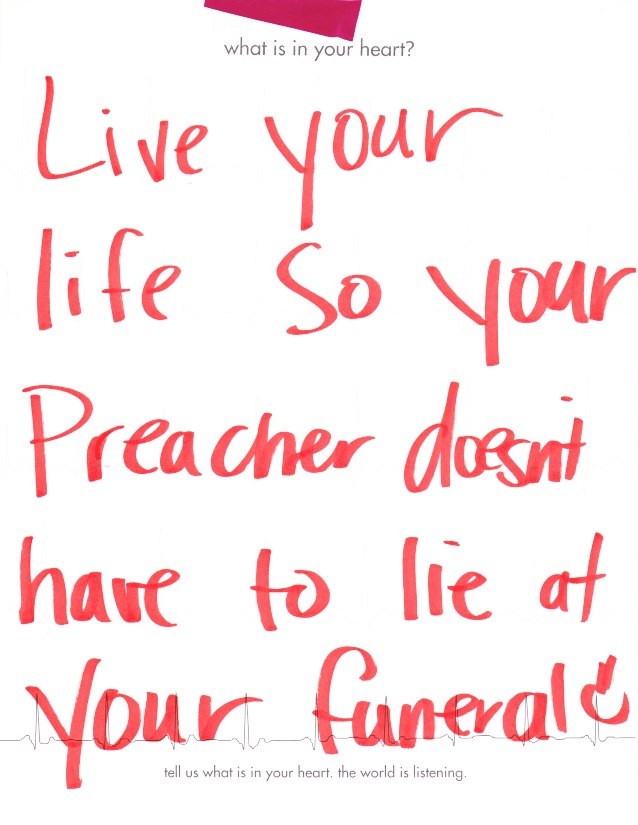 what is in your heart?
Live your
life So your
Preacher doesn't
have to lie at
your funeral
tell us what is in your heart. the world is listening.